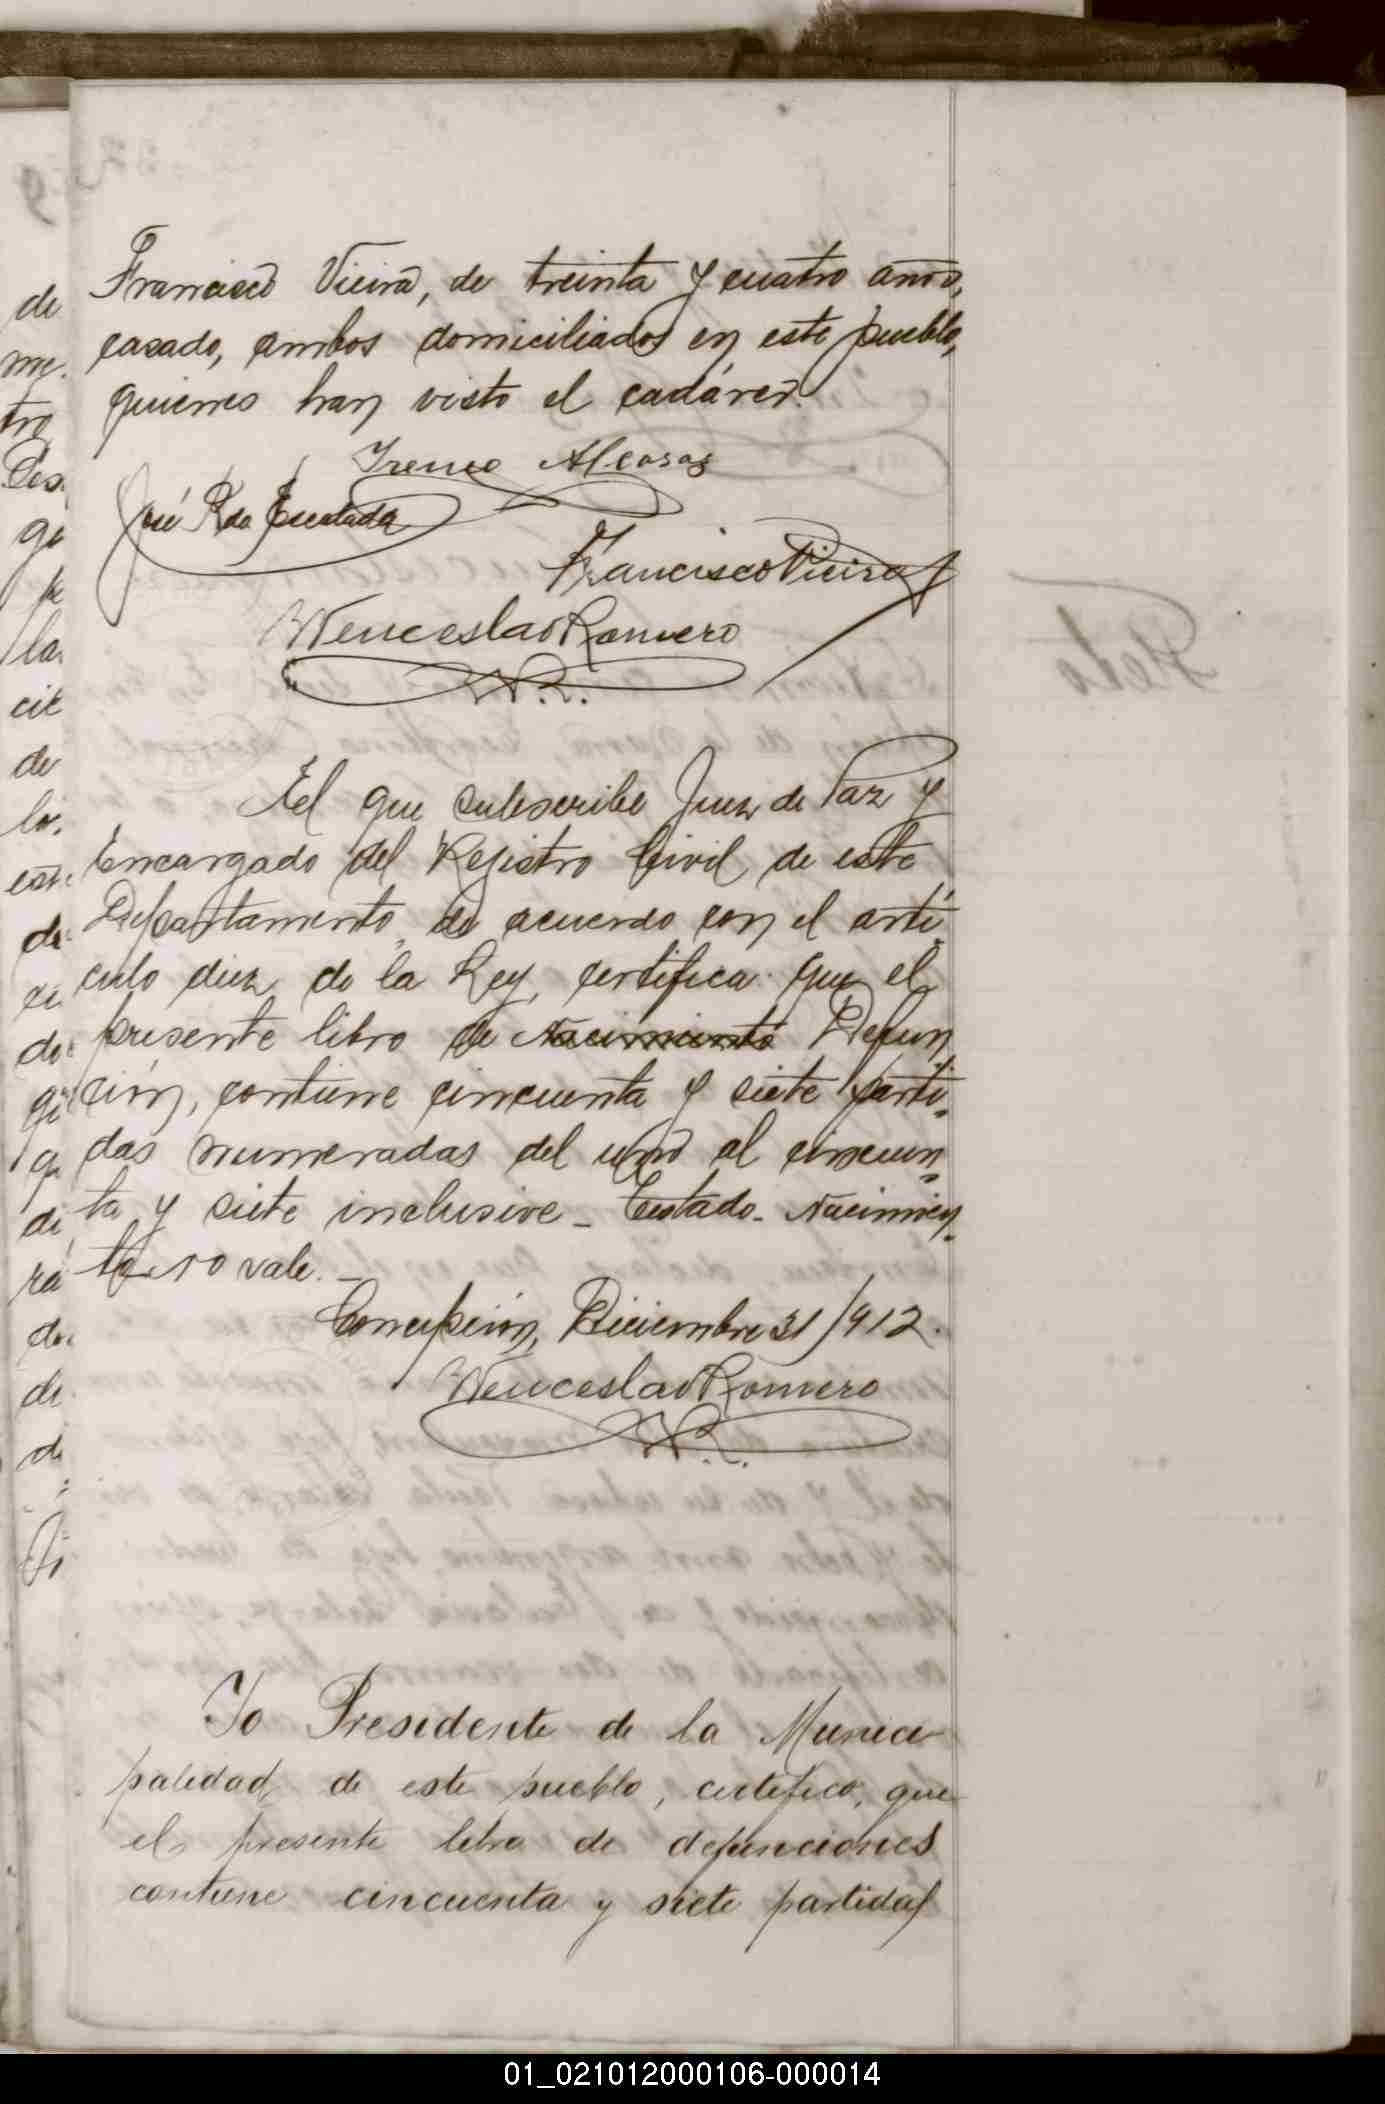 Francisco Vieira, de treinta y cuatro años,
casado, ambos domiciliados en este pueblo,
quienes han visto el cadáver.
Ireneo Alcaraz
José Rdo Escalada
Francisco Vieira
Wenceslao Romero
W.R.
El que subscribe Juez de Paz y
Encargado del Rejistro Civil de este
Departamento, de acuerdo con el artí
culo diez de la Ley, certifica que el
presente libro de Nacimiento Defun
ción, contiene cincuenta y siete parti-
das numeradas del uno al cincuen-
ta y siete inclusive - Testado - Nacimien-
to no vale. -
Concepción, Diciembre 31/912.
Wenceslao Romero
W.R.
Yo Presidente de la Munici
palidad de este pueblo, certifico, que
el presente libro de defunciones
contiene cincuenta y siete partidas
01_021012000106-000014